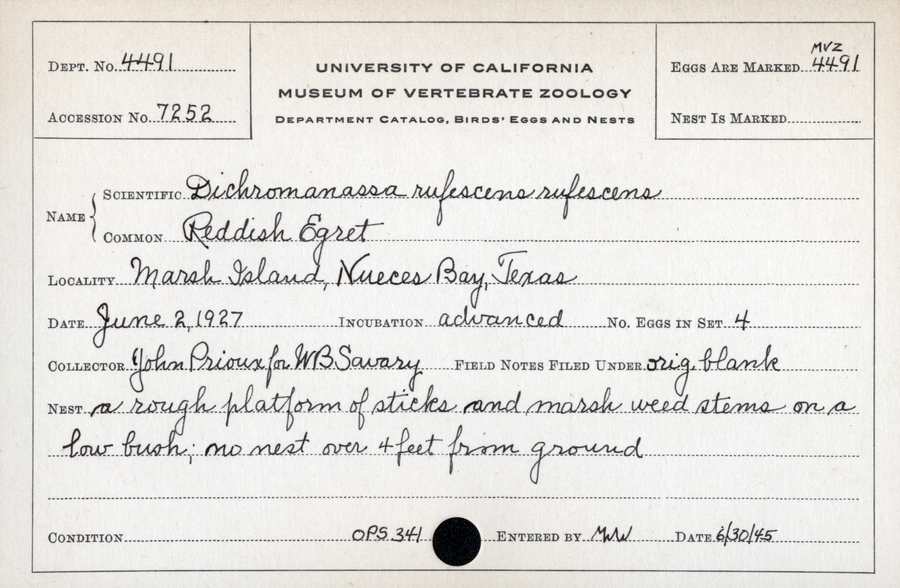 DEPT. No. 4491
ACCESSION No. 7252
UNIVERSITY OF CALIFORNIA
MUSEUM OF VERTEBRATE ZOOLOGY
DEPARTMENT CATALOG, BIRDS' EGGS AND NESTS
MVZ
EGGS ARE MARKED 4491
NEST IS MARKED
NAME
SCIENTIFIC Dichromanassa rufescens rufescens
COMMON Reddish Egret
LOCALITY Marsh Island, Nueces Bay, Texas
DATE June 2, 1927 INCUBATION advanced No. EGGS IN SET 4
COLLECTOR John Prioux for WB Savary FIELD NOTES FILED UNDER orig. blank
NEST a rough platform of sticks and marsh weed stems on a
low bush; no nest over 4 feet from ground
CONDITION OPS 341 ENTERED BY MWW DATE 6/30/45